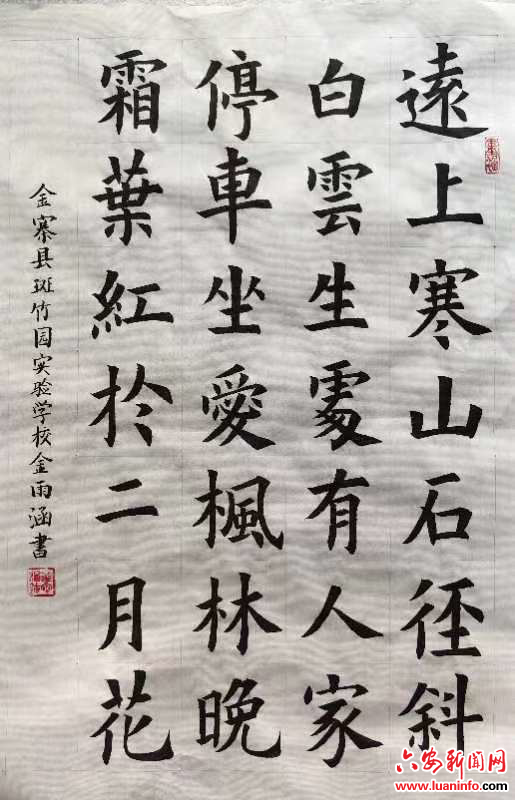 遠上寒山石徑斜
白雲生處有人家
停車坐愛楓林晚
霜葉紅於二月花
金寨县斑竹园实验学校金雨涵書
六安新闻网
www.luaninfo.com